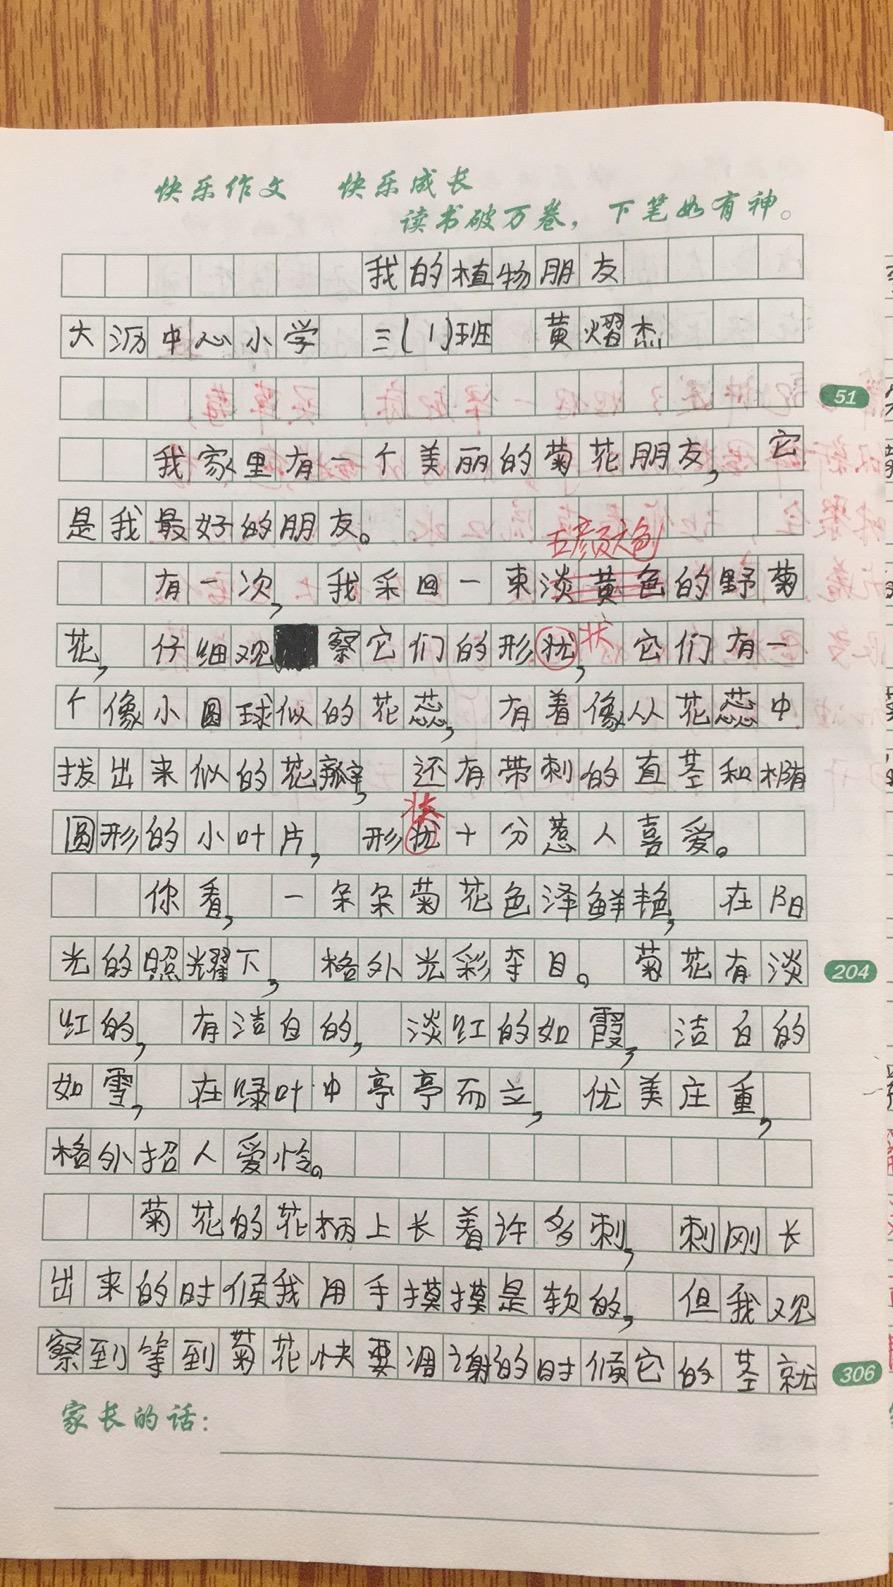 快乐作文 快乐成长
读书破万卷，下笔如有神。
我的植物朋友
大沥中心小学 三(1)班 黄熠杰
51
我家里有一个美丽的菊花朋友，它
是我最好的朋友。
五颜六色
有一次，我采回一束淡黄色的野菊
花，仔细观察它们的形状，它们有一
个像小圆球似的花蕊，有着像从花蕊中
拔出来似的花瓣，还有带刺的直茎和椭
状
圆形的小叶片，形十分惹人喜爱。
你看，一朵朵菊花色泽鲜艳，在阳
光的照耀下，格外光彩夺目。菊花有淡
204
红的，有洁白的，淡红的如霞，洁白的
如雪，在绿叶中亭亭而立，优美庄重，
格外招人爱怜。
菊花的花柄上长着许多刺，刺刚长
出来的时候我用手摸摸是软的，但我观
察到等到菊花快要凋谢的时候它的茎就
306
家长的话：